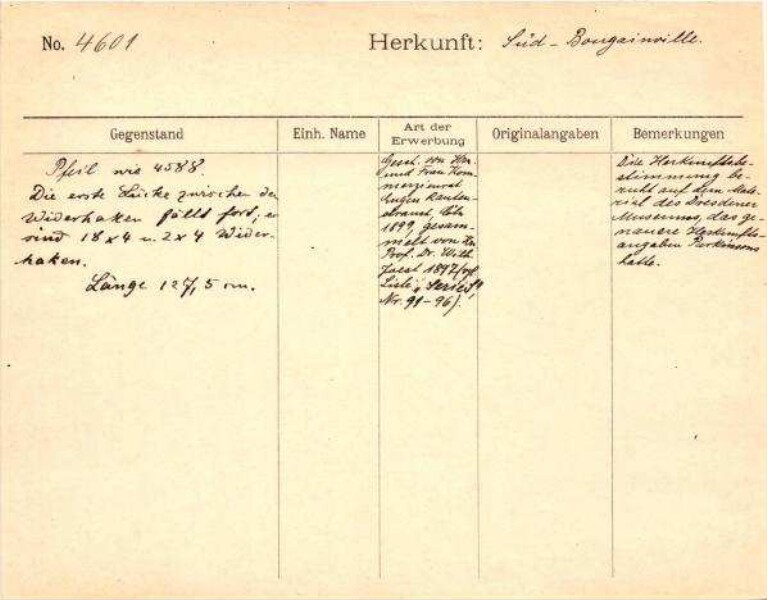 No. 4601 Herkunft: Süd-Bougainville.
Gegenstand Einh. Name Art der Erwerbung Originalangaben Bemerkungen
Pfeil wie 4588.
Die erste Lücke zwischen den
Widerhaken fällt fort; es
sind 18 x 4 u. 2 x 4 Wider-
haken.
Länge 127,5 cm.
Gesch. von Hrn.
und Frau Kom-
merzienrat
Eugen Rauten-
strauch, Cöln
1899, gesam-
melt von Hn.
Prof. Dr. Wilh.
Joest 1897/
Liste "Series"
Nr. 91-96).
Die Herkunftsbe-
stimmung be-
ruht auf dem Mate-
rial des Dresdener
Museums, das ge-
nauere Herkunfts-
angaben Parkinsons
hatte.